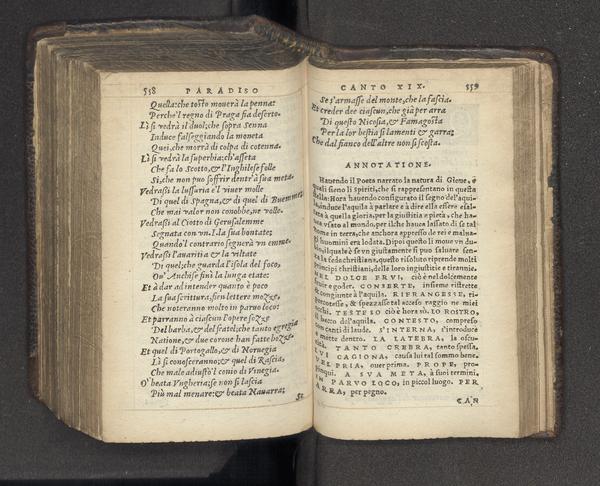 558 PARADISO
Quella: che tosto mouerà la penna:
Perche'l regno di Praga fia deserto.
Lì si vedrà il duol; che sopra Senna
Induce falseggiando la moneta
Quei, che morrà di colpa di cotenna.
Lì si vedrà la superbia; ch'asseta
Che fa lo Scotto, & l'Inghilese folle
Sì, che non può soffrir dentr'à sua meta.
Vedrassi la lussuria e'l viuer molle
Di quel di Spagna, & di quel di Buemme;
Che mai valor non conobbe, ne volle.
Vedrassi al Ciotto di Gerusalemme
Segnata con vn. I. la sua bontate;
Quando'l contrario segnerà vn emme.
Vedrassi l'auaritia & la viltate
Di quel; che guarda l'isola del foco,
Ou' Anchise finì la lunga etate:
Et à dar ad intender quanto è poco
La sua scrittura, fien lettere mozze,
Che noteranno molto in paruo loco:
Et parranno à ciascun l'opere sozze
Del barba, & del fratel; che tanto egregia
Natione, & due corone han fatte bozze.
Et quel di Portogallo, & di Noruegia
Lì si conosceranno; & quel di Rascia,
Che male adiustò'l conio di Vinegia.
O' beata Vngheria; se non si lascia
Più mal menare: & beata Nauarra;
Se
CANTO XIX. 559
Se s'armasse del monte, che la fascia.
Et creder dee ciascun, che già per arra
Di questo Nicosia, & Famagosta
Per la lor bestia si lamenti & garra;
Che dal fianco dell'altre non si scosta.
ANNOTATIONE.
Hauendo il Poeta narrato la natura di Gioue, è
quali sieno li spiriti, che si rappresentano in questa
stella: Hora hauendo configurato il segno del'aqui-
la, induce l'aquila à parlare e à dire ella essere esal-
tata à quella gloria, per la giustitia e pietà, che ha-
uea vsato al mondo, per il che hauea lassato di sì tal
nome in terra, che anchora appresso de rei e malua-
gi huomini era lodata. Dipoi questo li moue vn du-
bio, il quale è se vn giustamente si puo saluare sen-
za la fede christiana, questo risoluto riprende molti
principi christiani, delle loro ingiustitie e tirannie.
NEL DOLCE FRVI, ciò è nel dolcemente
fruire e goder. CONSERTE, insieme ristrette
& congiunte à l'aquila. RIFRANGESSE, ri-
percotesse, & spezzasse tal acceso raggio ne miei
occhi. TESTESO ciò è hora sù. LO ROSTRO,
il becco del'aquila. CONTESTO, compreso
con canti di laude. S'INTERNA, s'introduce
e mette dentro. LA LATEBRA, la oscu-
rità. TANTO CREBRA, tanto spessa.
LVI CAGIONA, causa lui tal sommo bene.
DEL PRIA, ouer prima. PROPE, pro-
pinqui. A SVA META, à suoi termini.
IN PARVO LOCO, in piccol luogo. PER
ARRA, per pegno.
CAN